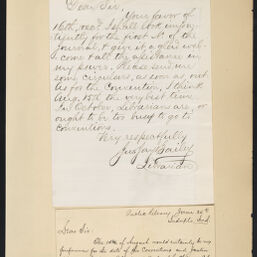 Dear Sir,
Your favor of
16th, rec'd. I shall look impa-
tiently for the first No. of the
Journal, & give it a glad wel-
come & all the assistance in
my power. Please send me
some circulars, as soon as out.
As for the Convention, I think
Aug. 15th the very best time
In October, Librarians are, or
ought to be too busy to go to
conventions.
Very respectfully
Bailey,
Librarian
Public Library, June 20th
Indpls, Ind.
Dear Sir:
The 15th of August would certainly be my
preference for the date of the Convention and